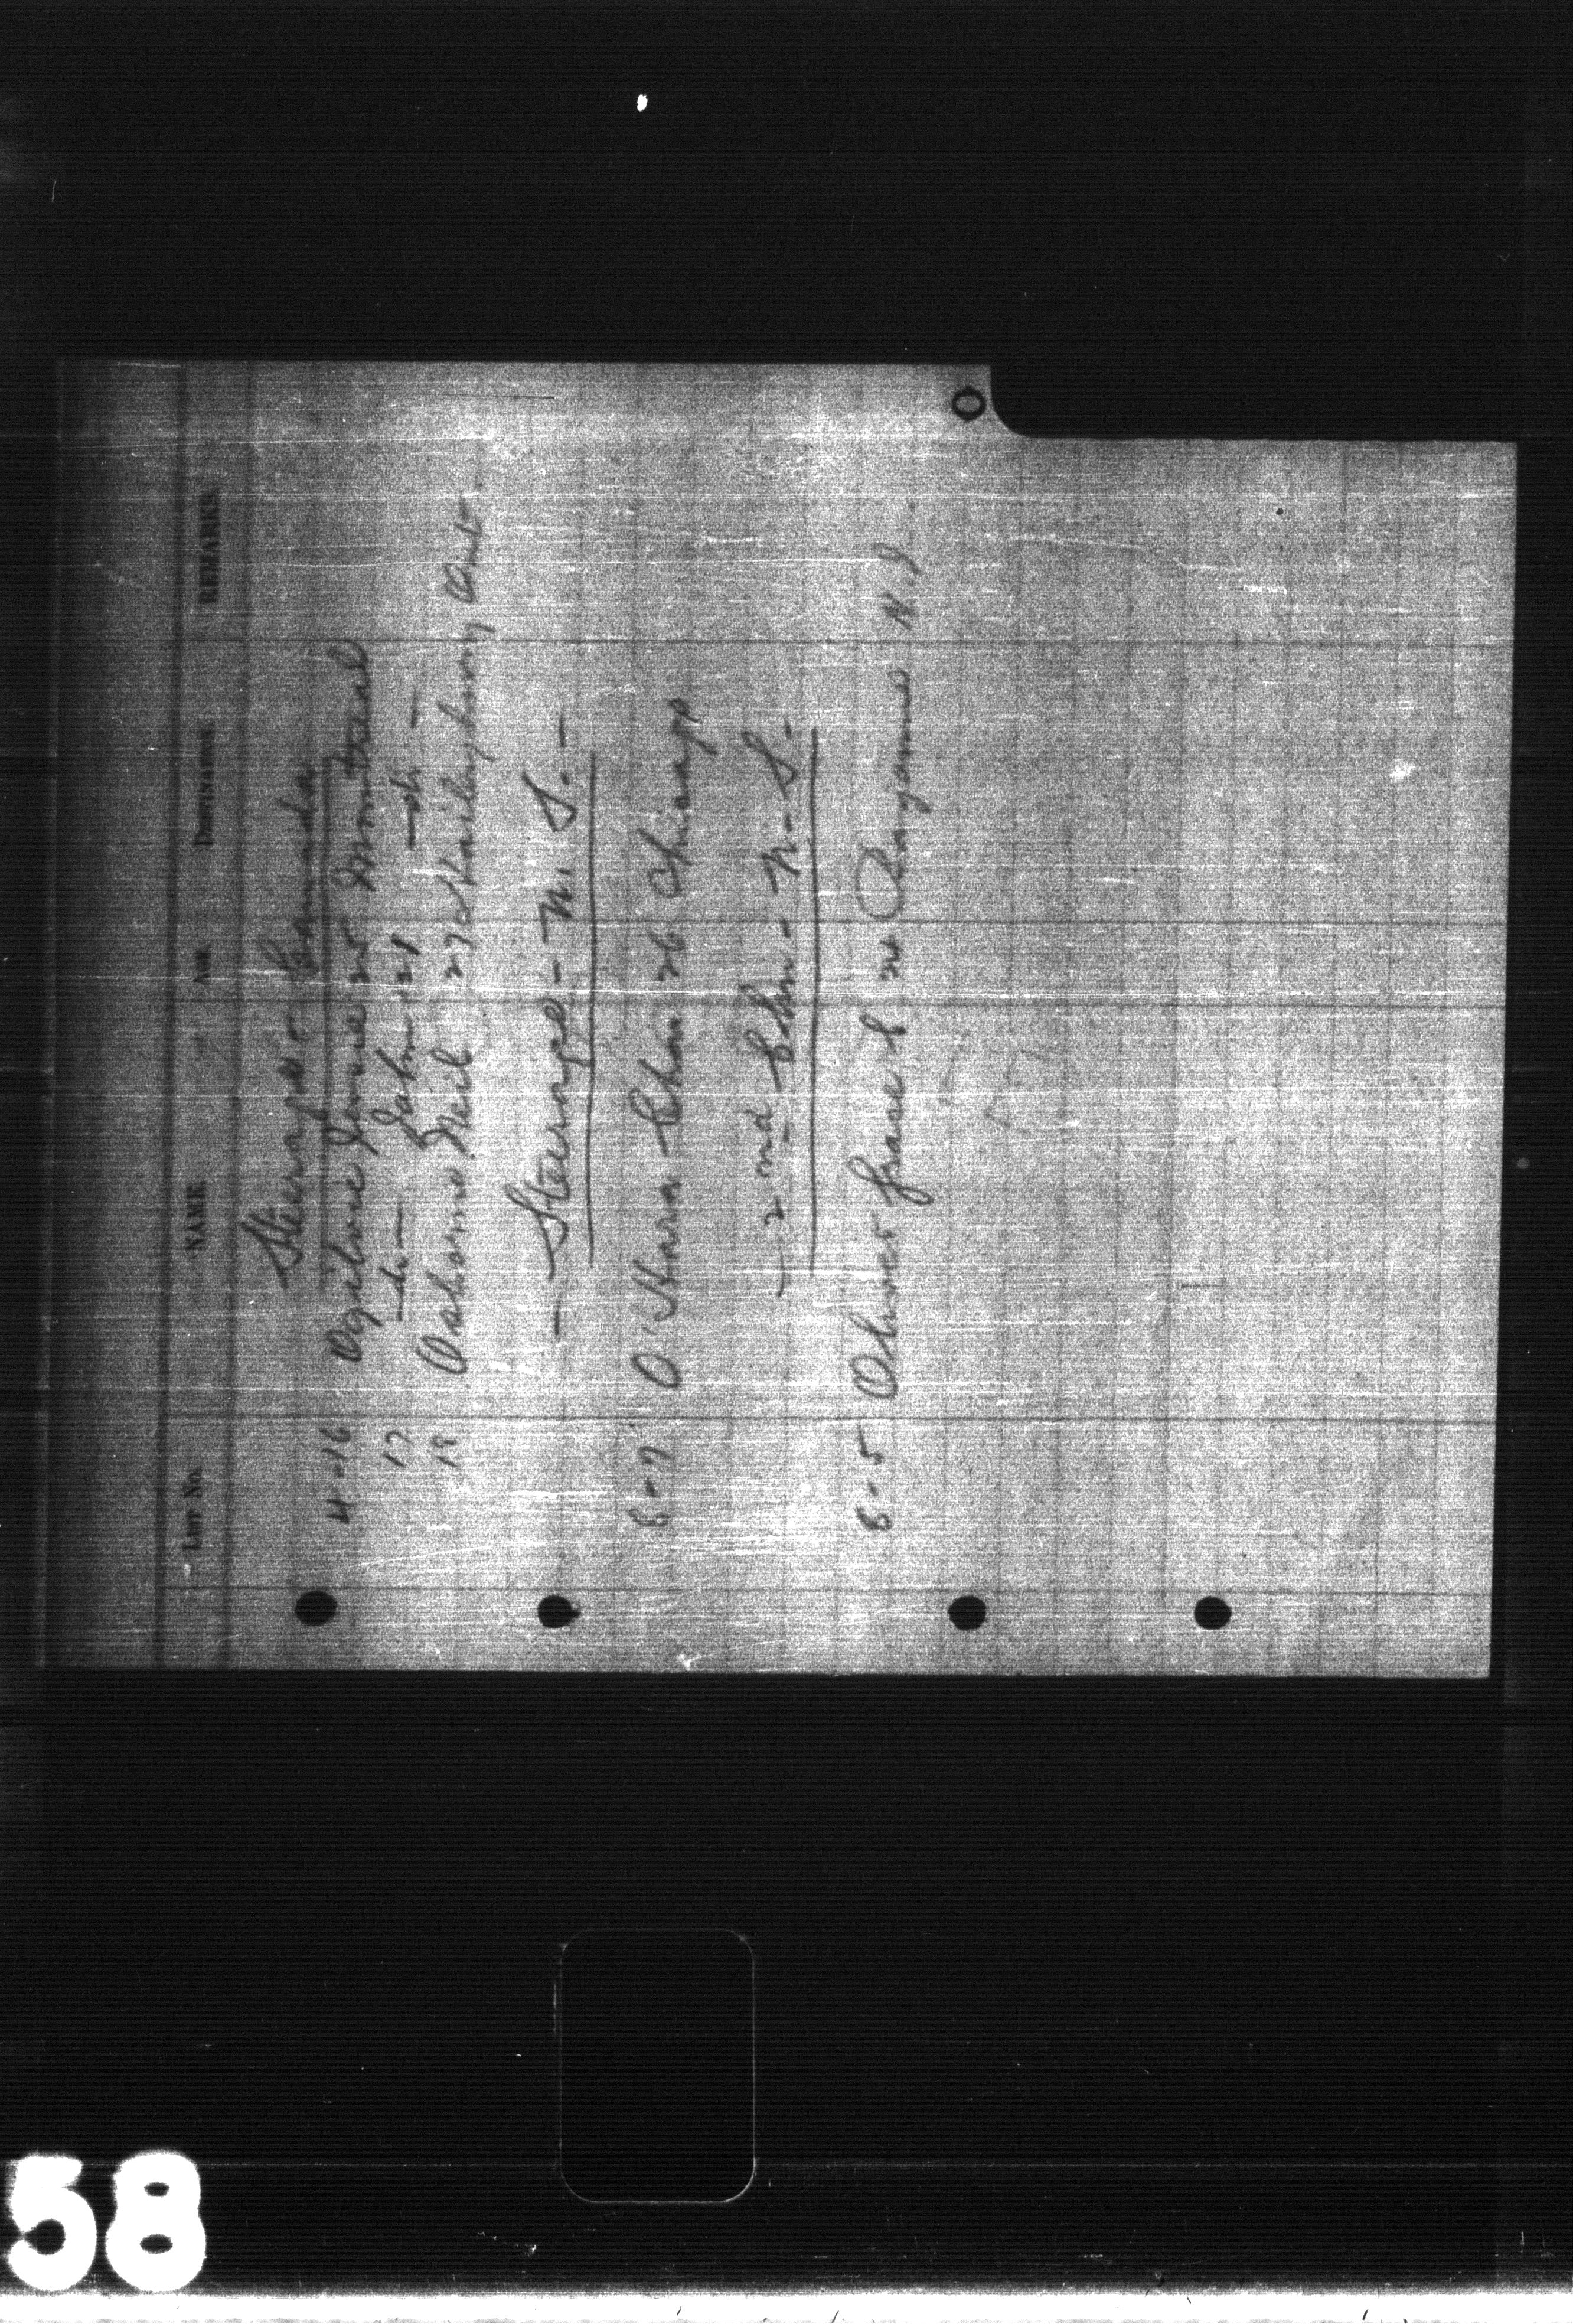 LIST No. NAME AGE DESTINATION REMARKS
Steerage - Canada
4-16 Ogilvie 25 Montreal
17 -do- John 21 -do-
18 Osborne Neil 27 Ont-
- Steerage - U.S. -
6-7 O'Hara Chas 26 Chicago
- 2nd Cbn - U.S. -
6-5 Grace L 24 N.J
O
58